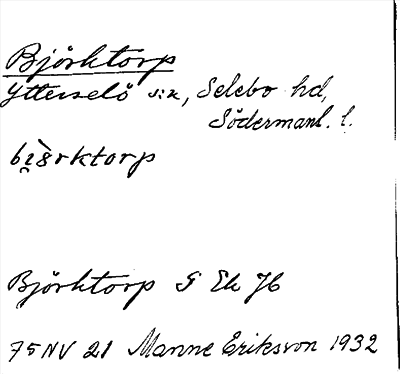 Björktorp
Ytterselö s:n, Selebo hd,
Södermanl. l.
bi̯ö̀rktorp
Björktorp G Ek Jb
75 NV 21 Manne Eriksson 1932